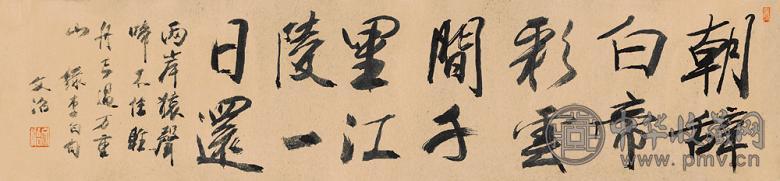 朝辭
白帝
彩雲
間千
里江
陵一
日還
兩岸猿聲
啼不住輕
舟已過万重
山 錄李白句
文治
中华收藏网
www.pmv.cn